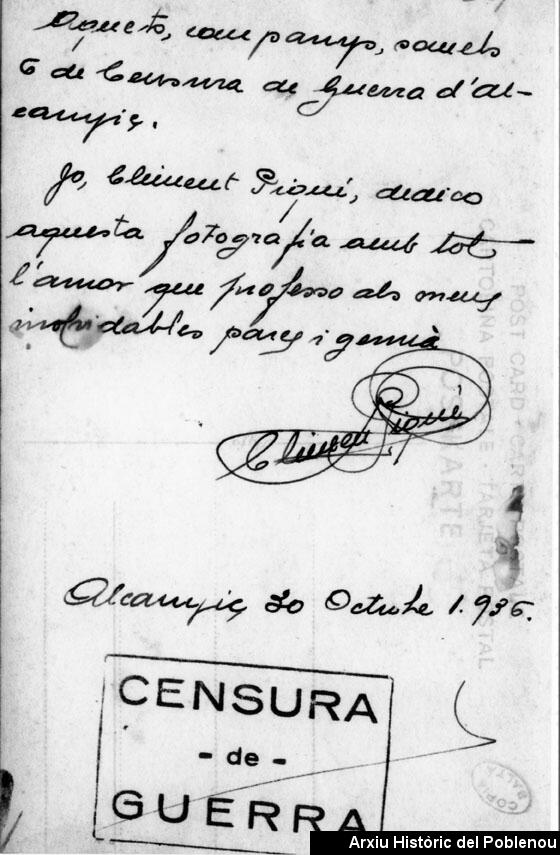 Aquets, companys, som els
6 de Censura de Guerra d'Al-
canyiç.
Jo, Climent Piqué, dedico
aquesta fotografia amb tot
l'amor que professo als meus
inolvidables pares i germà
Climent Piqué
Alcanyiç 30 Octubre 1.936.
CENSURA
- de -
GUERRA
POST CARD
POSTKARTE
TARJETA POSTAL
COPIA
BALTÀ
Arxiu Històric del Poblenou